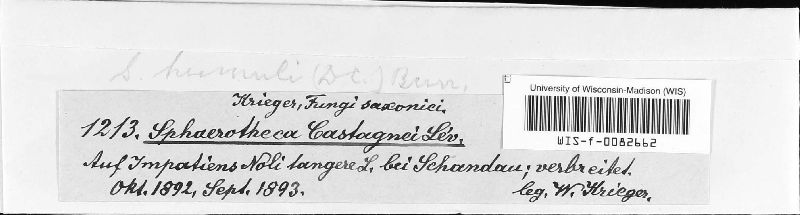 S. humuli (DC.) Burr.
University of Wisconsin-Madison (WIS)
WIS-f-0082662
Krieger, Fungi saxonici.
1213. Sphaerotheca Castagnei Lév.
Auf Impatiens Noli tangere L. bei Schandau; verbreitet.
Okt. 1892, Sept. 1893. leg. W. Krieger.